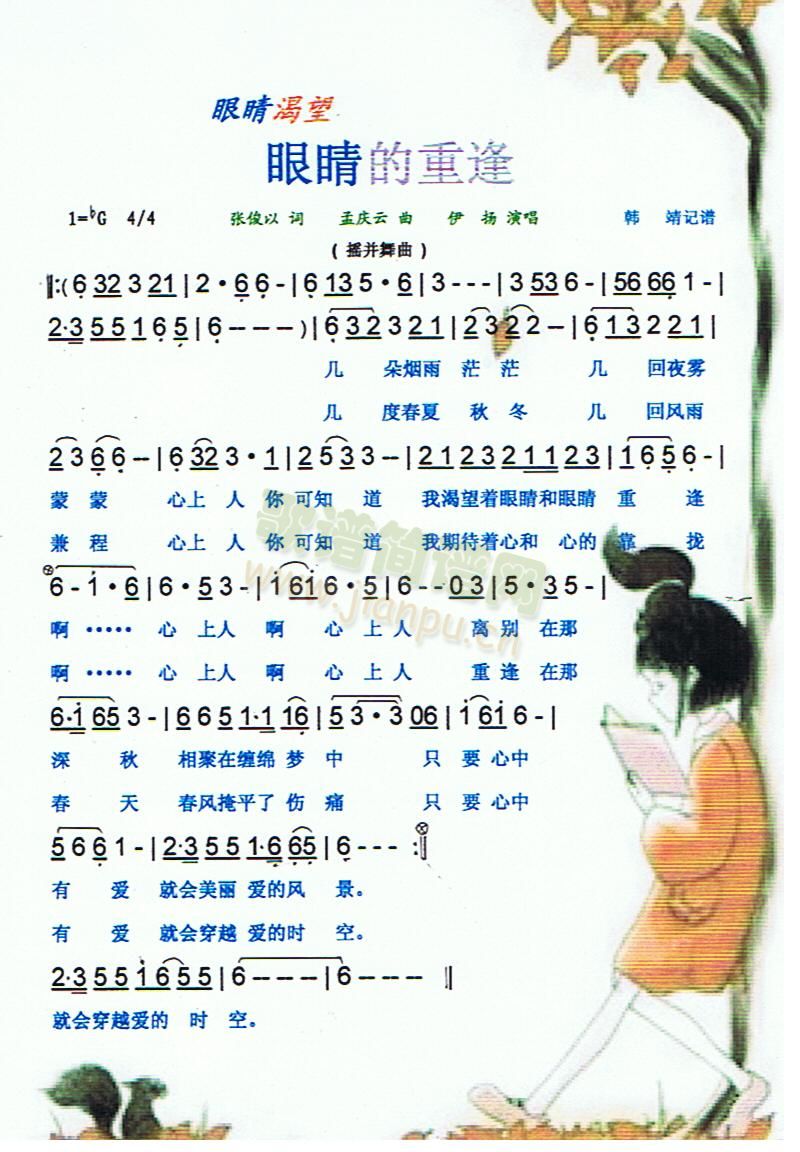 眼睛渴望
眼睛的重逢
1=♭G 4/4 张俊以 词 孟庆云 曲 伊 扬 演唱 韩 靖记谱
( 摇并舞曲 )
‖:( 6 32 3 21 | 2 · 6 6 - | 6 13 5 · 6 | 3 - - - | 3 53 6 - | 56 66 1 - |
2·3 5 5 1 6 5 | 6 - - - ) | 6 3 2 3 2 1 | 2 3 2 2 - | 6 1 3 2 2 1 |
几 朵烟雨 茫 茫 几 回夜雾
几 度春夏 秋 冬 几 回风雨
2 3 6 6 - - | 6 32 3 · 1 | 2 5 3 3 - - | 2 1 2 3 2 1 1 2 3 | 1 6 5 6 - |
蒙 蒙 心上 人 你 可知 道 我渴望着眼睛和眼睛 重 逢
兼 程 心上 人 你 可知 道 我期待着心和 心的 靠 拢
6 - 1 · 6 | 6 · 5 3 - | 1 61 6 · 5 | 6 - - 0 3 | 5 · 3 5 - |
啊 ····· 心 上人 啊 心 上 人 离 别 在那
啊 ····· 心 上人 啊 心 上 人 重 逢 在那
6·1 65 3 - | 6 6 5 1·1 16 | 5 3 · 3 06 | 1 61 6 - |
深 秋 相聚在缠绵 梦 中 只 要 心中
春 天 春风掩平了 伤 痛 只 要 心中
5 6 6 1 - | 2·3 5 5 1·6 65 | 6 - - - :‖
有 爱 就会美丽 爱的风 景。
有 爱 就会穿越 爱的时 空。
2·3 5 5 1 6 5 5 | 6 - - - - | 6 - - - - ‖
就会穿越爱的 时 空。
歌谱简谱网
www.jianpu.cn